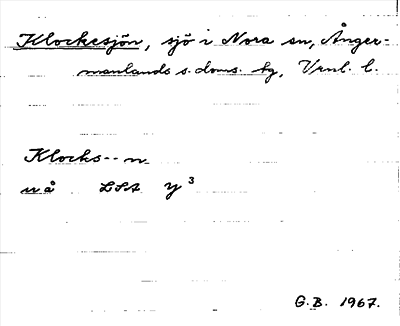 Klockesjön, sjö i Nora sn, Ånger-
manlands s. doms. tg, Vrnl. l.
Klocks-- n
nå LSA Y³
G.B. 1967.